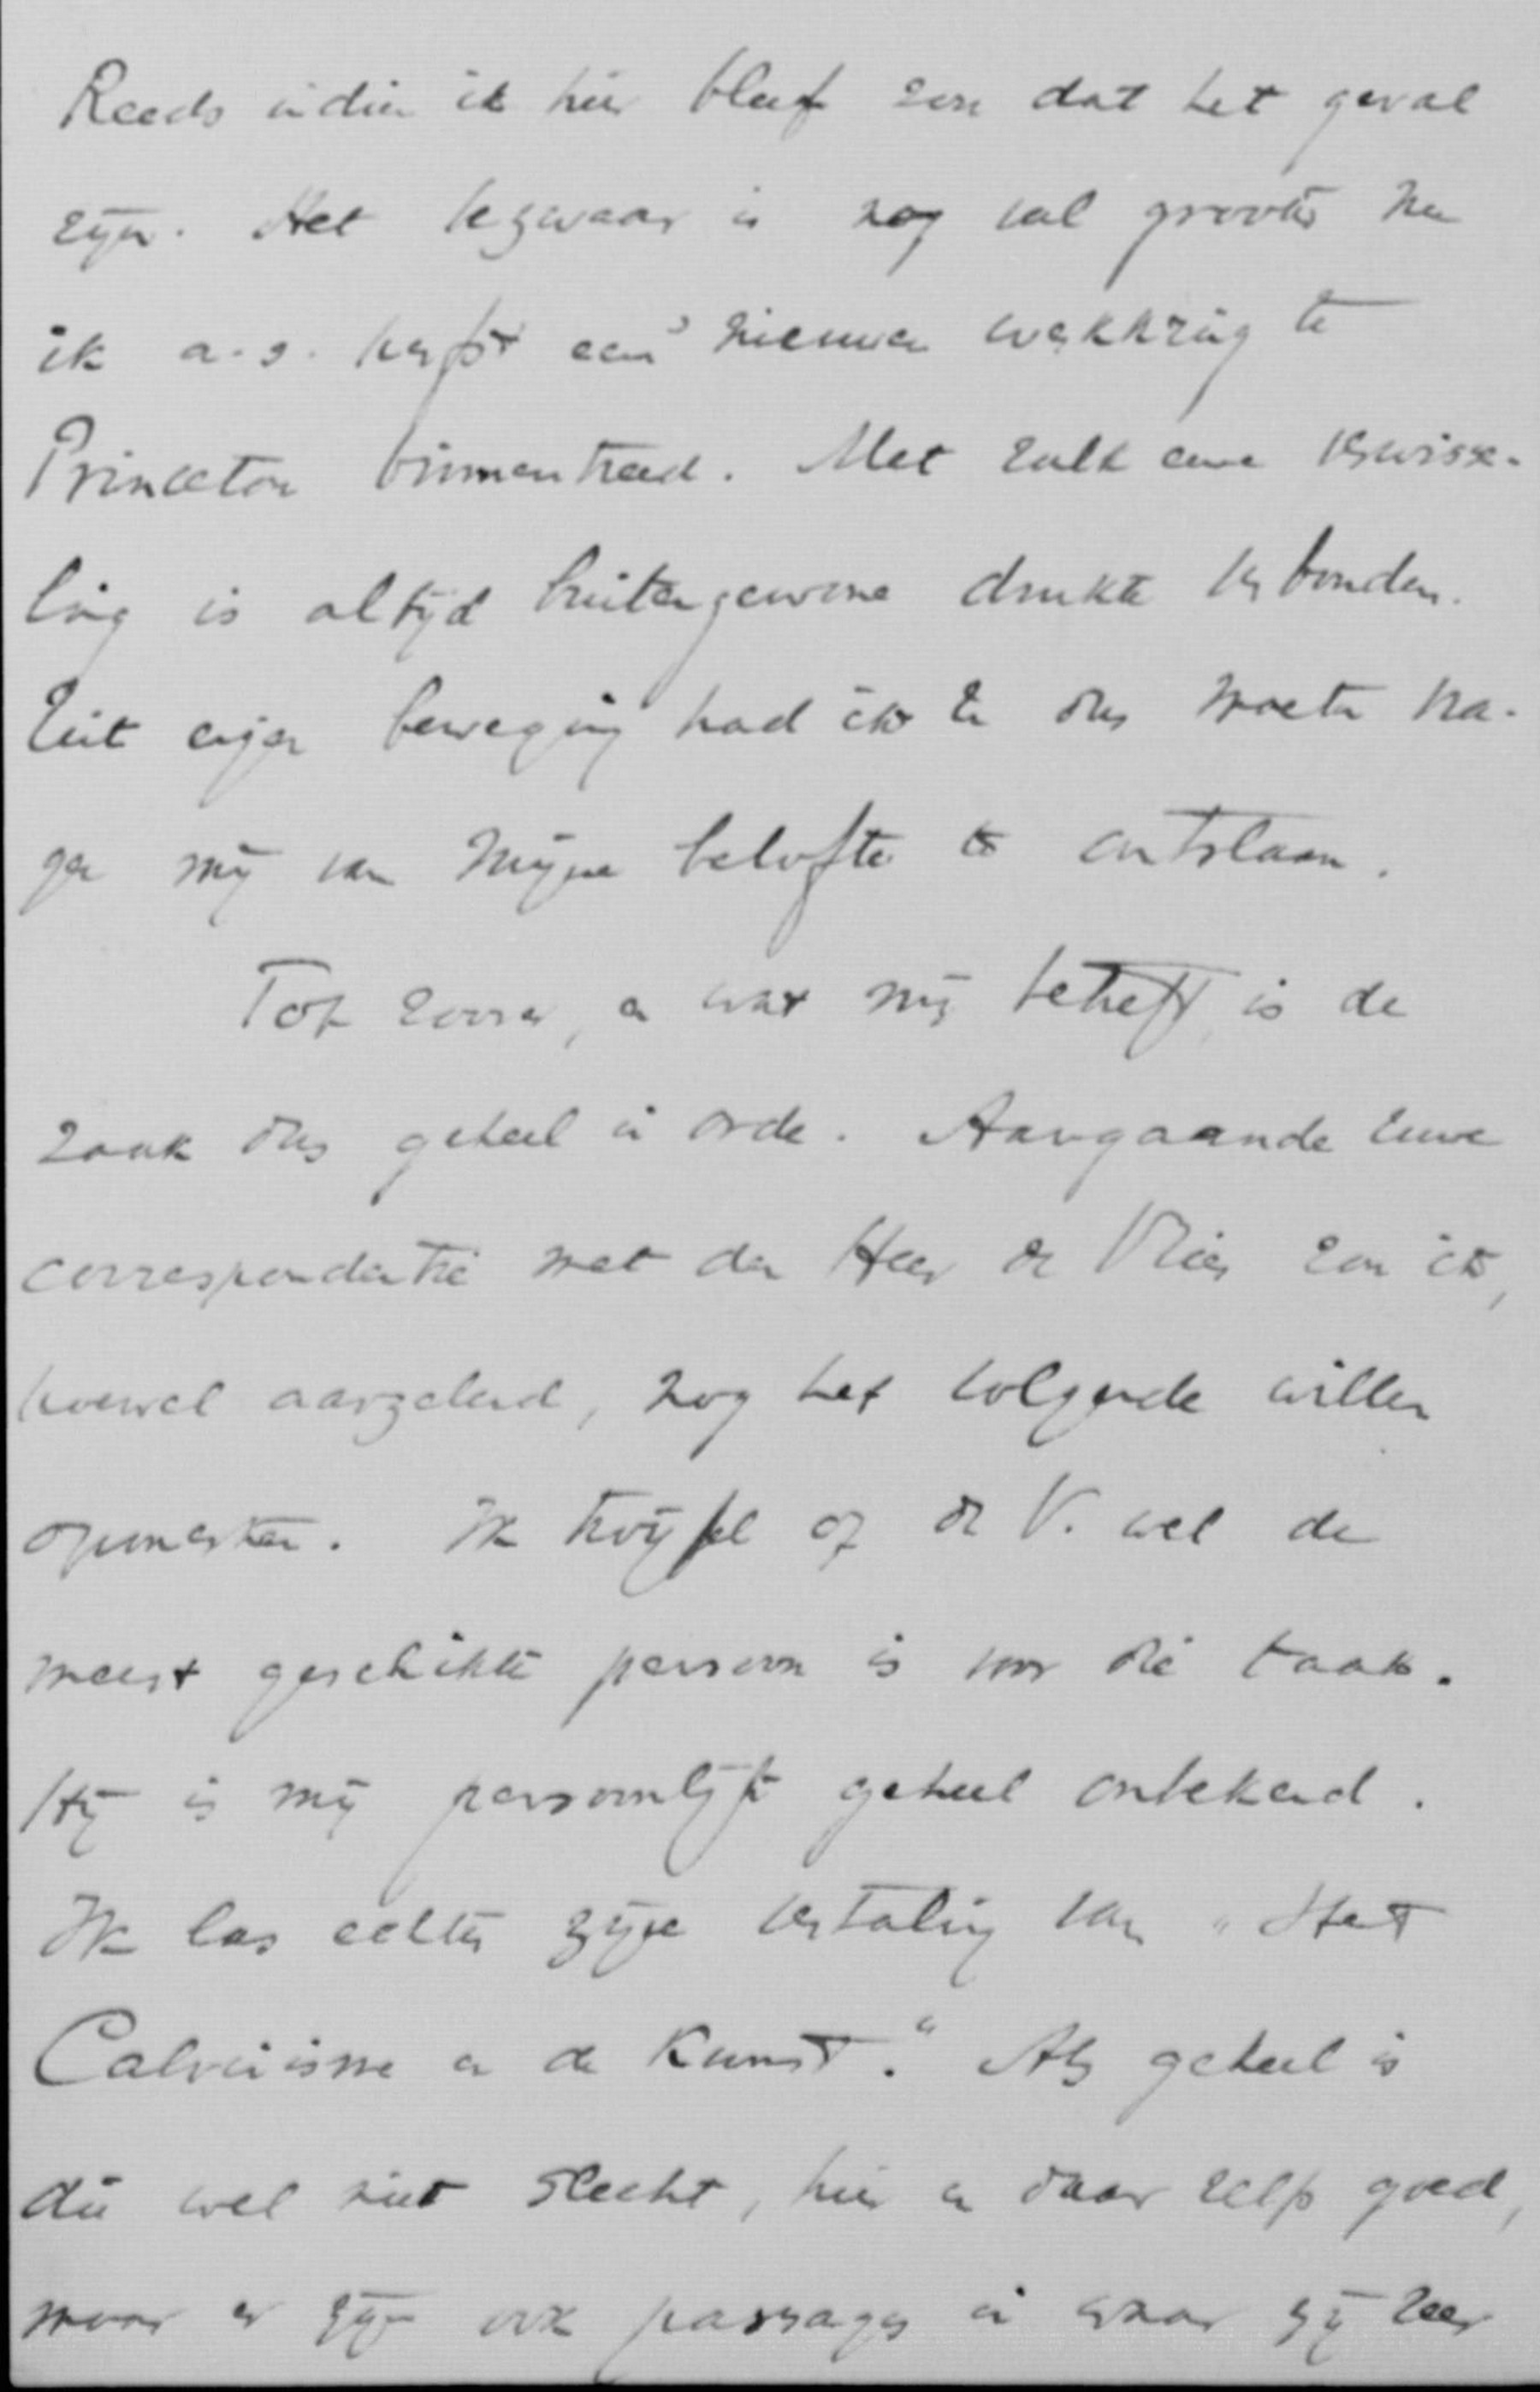 Reeds indien ik hier bleef zou dat het geval
zijn. Het bezwaar is nog veel grooter nu
ik a.s. herfst een nieuwen werkkring te
Princeton binnentreed. Met zulk eene verwisse-
ling is altijd buitengewone drukte verbonden.
Uit eigen beweging had ik U dus moeten vra-
gen mij van mijne belofte te ontslaan.
Tot zoover, en wat mij betreft, is de
zaak dus geheel in orde. Aangaande Uwe
correspondentie met den Heer de Vries zou ik,
hoewel aarzelend, nog het volgende willen
opmerken. Ik twijfel of de V. wel de
meest geschikte persoon is voor die taak.
Hij is mij persoonlijk geheel onbekend.
Ik las echter zijne vertaling van "Het
Calvinisme en de Kunst." Als geheel is
die wel niet slecht, hier en daar zelfs goed,
maar er zijn ook passages in waar zij zeer